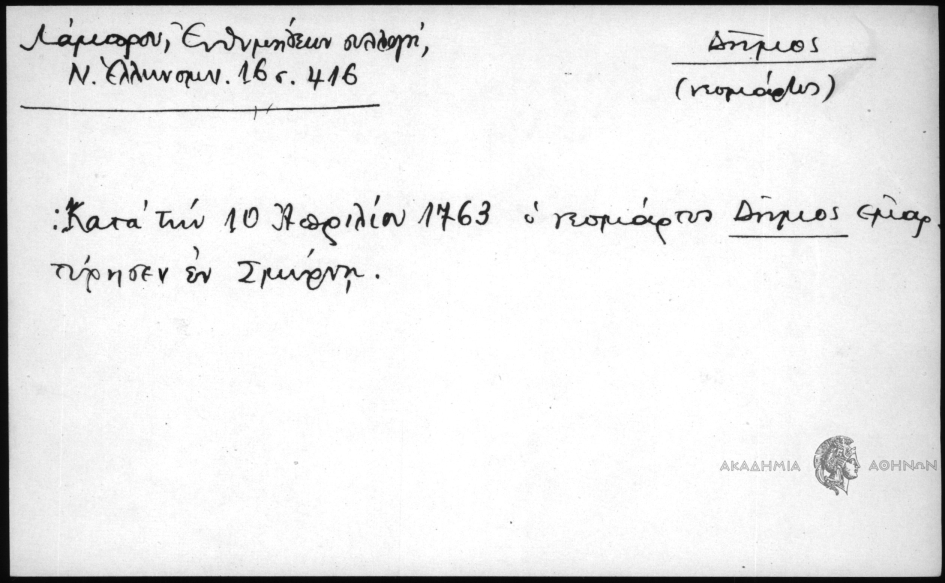 Λάμπρου, Ἐνθυμήσεων συλλογή,
Ν. Ἑλληνομν. 16 σ. 416
Δῆμος
(νεομάρτυς)
:Κατά τήν 10 Ἀπριλίου 1763 ὁ νεομάρτυς Δῆμος ἐμαρ
τύρησεν ἐν Σμύρνῃ.
ΑΚΑΔΗΜΙΑ ΑΘΗΝΩΝ